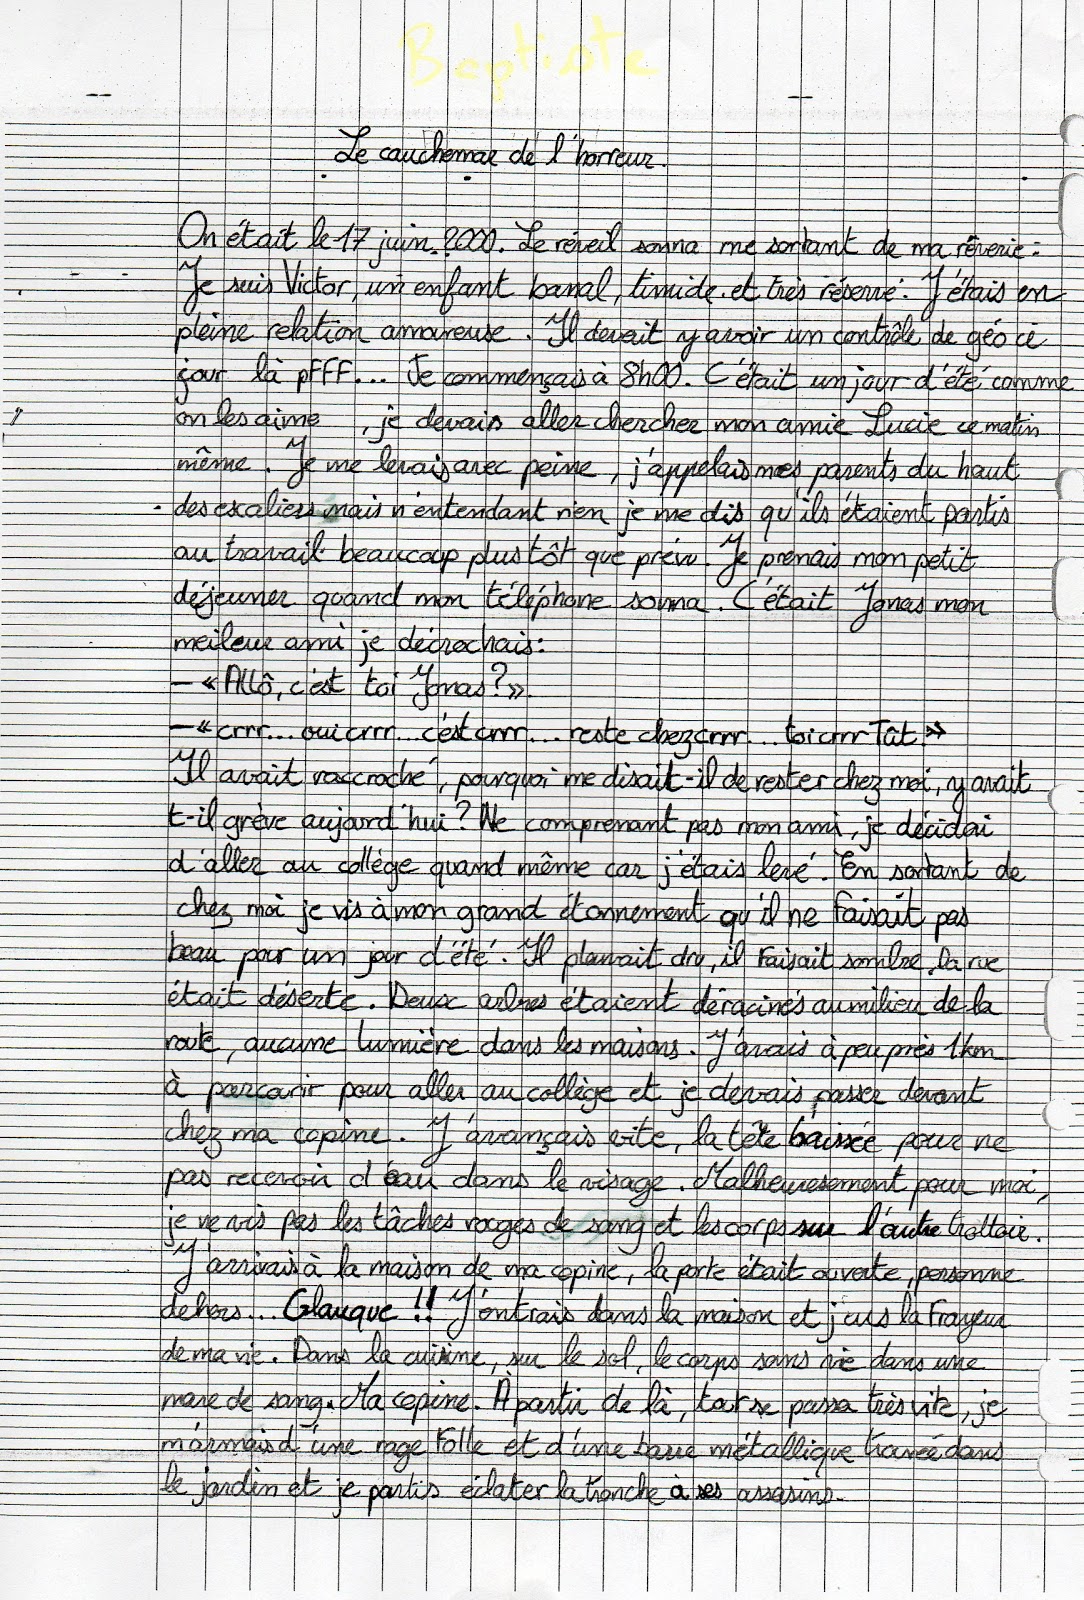 Baptiste
Le cauchemar de l'horreur.
On était le 17 juin 2000. Le réveil sonna me sortant de ma rêverie :
Je suis Victor, un enfant banal, timide et très réservé. J'étais en
pleine relation amoureuse. Il devait y avoir un contrôle de géo ce
jour là pFFF... Je commençais à 8h00. C'était un jour d'été comme
on les aime , je devais aller chercher mon amie Lucie ce matin
même. Je me levais avec peine, j'appelais mes parents du haut
des escaliers mais n'entendant rien je me dis qu'ils étaient partis
au travail beaucoup plus tôt que prévu. Je prenais mon petit
déjeuner quand mon téléphone sonna. C'était Jonas mon
meileur ami je décrochais:
— « Allô, c'est toi Jonas? ».
— « crrr... oui crrr... c'est crrr... reste chez crrr... toi crrr Tât. »
Il avait raccroché, pourquoi me disait-il de rester chez moi, y avait
t-il grève aujourd'hui? Ne comprenant pas mon ami, je décidai
d'aller au collège quand même car j'étais levé. En sortant de
chez moi je vis à mon grand étonnement qu'il ne faisait pas
beau pour un jour d'été. Il pleuvait dru, il faisait sombre, la rue
était déserte. Deux arbres étaient déracinés au milieu de la
route, aucune lumière dans les maisons. J'avais à peu près 1km
à parcourir pour aller au collège et je devais passer devant
chez ma copine. J'avançais vite, la tête baissée pour ne
pas recevoir d'eau dans le visage. Malheuresement pour moi,
je ne vis pas les tâches rouges de sang et les corps sur l'autre trottoir.
J'arrivais à la maison de ma copine, la porte était ouverte, personne
dehors... Glauque !! J'entrais dans la maison et j'eus la frayeur
de ma vie. Dans la cuisine, sur le sol, le corps sans vie dans une
mare de sang. Ma copine. À partir de là, tout se passa très vite, je
m'armais d'une rage folle et d'une barre métallique trouvée dans
le jardin et je partis éclater la tronche à ses assasins.